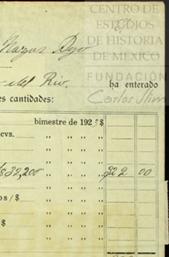 CENTRO DE
ESTUDIOS
DE HISTORIA
DE MEXICO
FUNDACIÓN
Carlos Slim
del Rio, ha enterado
es cantidades:
bimestre de 192 $
cvs.
$32,200 322 00
os/$
$